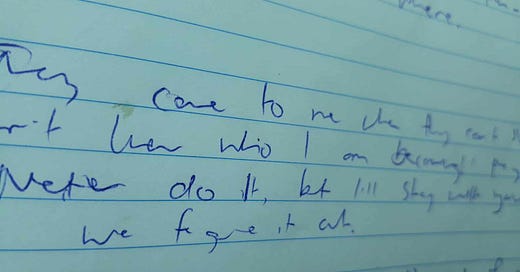 there.
They come to me when they can't s
n't know who I am becoming
do it, but I'll stay with you
we figure it out.